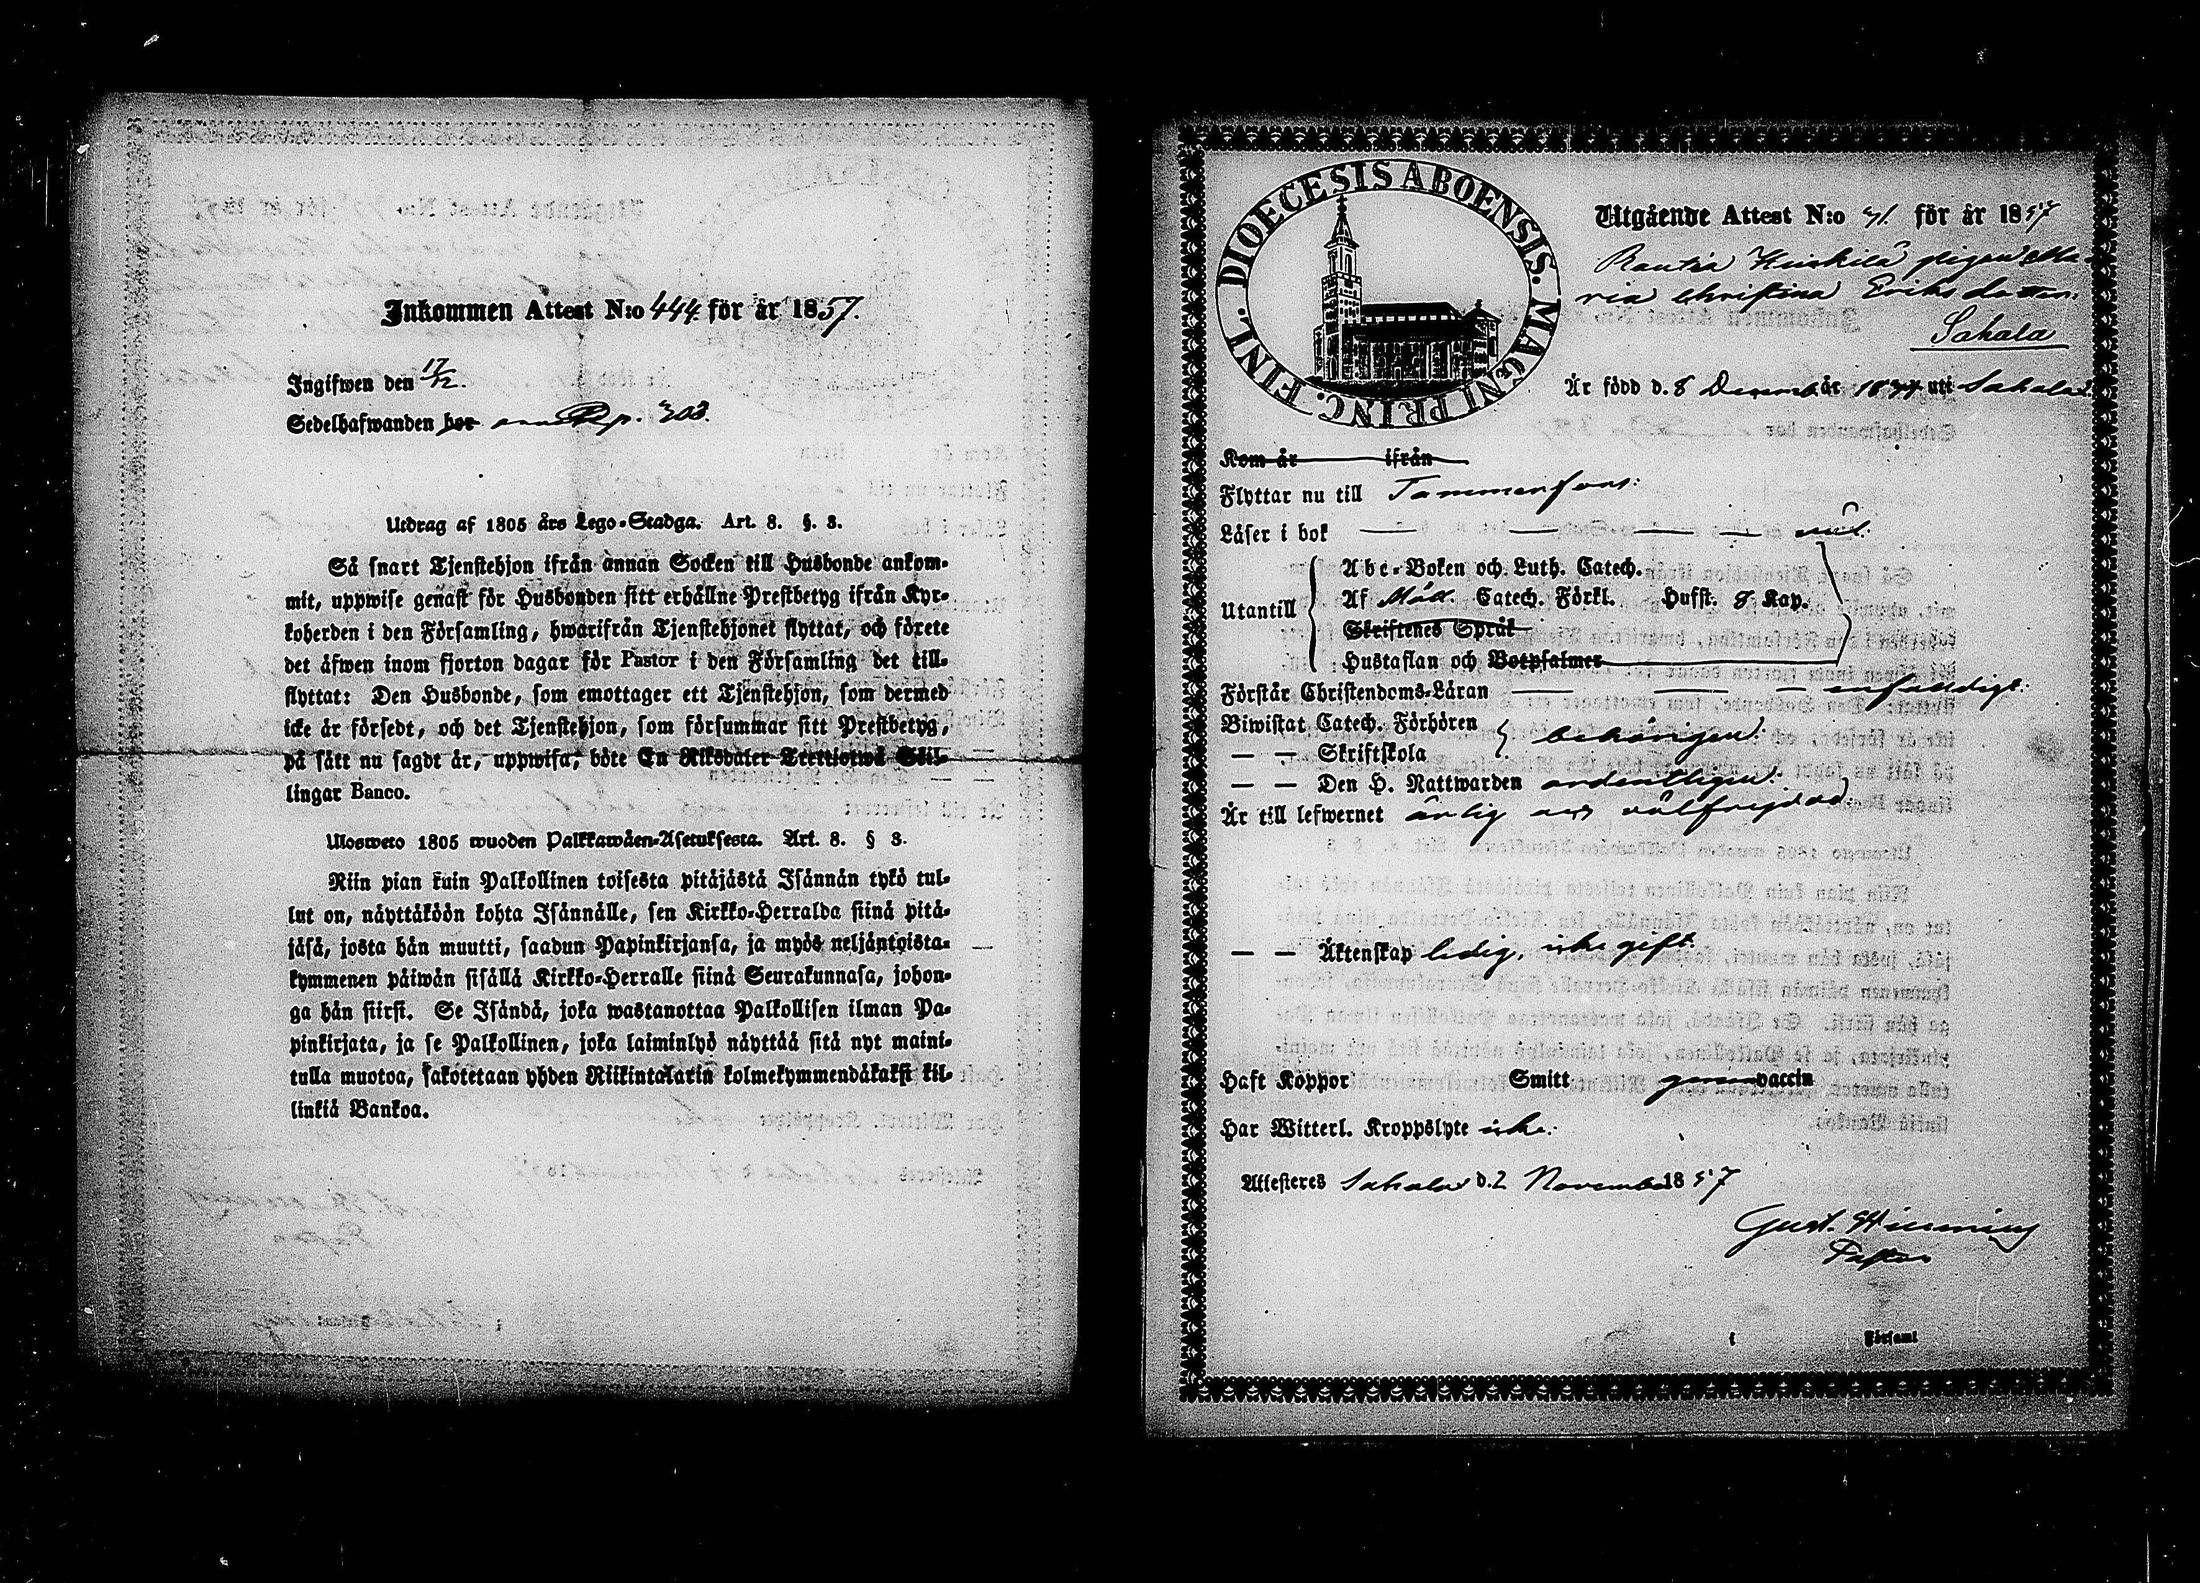 Inkommen Attest N:o 444 för år 1857.
Ingifwen den 17/12.
Sedelhafwanden bor p. 303.
Utdrag af 1805 års Lego-Stadga. Art. 8. §. 8.
Så snart Tjenstehjon ifrån annan Socken till Husbonde ankom-
mit, uppwise genast för Husbonden sitt erhållne Prestbetyg ifrån Kyr-
koherden i den Församling, hwarifrån Tjenstehjonet flyttat, och förete
det äfwen inom fjorton dagar för Pastor i den Församling det till-
flyttat: Den Husbonde, som emottager ett Tjenstehjon, som dermed
icke är försedt, och det Tjenstehjon, som försummar sitt Prestbetyg,
på sätt nu sagdt är, uppwisa, böte En Riksdaler Trettiotwå Skil-
lingar Banco.
Ulosweto 1805 wuoden Palkkawäen-Asetuksesta. Art. 8. § 8.
Niin pian kuin Palkollinen toisesta pitäjästä Isännän tykö tul-
lut on, näyttäköön kohta Isännälle, sen Kirkko-Herralda siinä pitä-
jäsä, josta hän muutti, saadun Papinkirjansa, ja myös neljäntoista-
kymmenen päiwän sisällä Kirkko-Herralle siinä Seurakunnasa, johon-
ga hän siirsi. Se Isändä, joka wastanottaa Palkollisen ilman Pa-
pinkirjata, ja se Palkollinen, joka laiminlyö näyttää sitä nyt maini-
tulla muotoa, sakotetaan yhden Riikintalarin kolmekymmendäkaksi kil-
linkiä Bankoa.
DIOECESIS ABOENSIS. MAGNI PRINC. FINL.
Utgående Attest N:o 71. för år 1857
Rautia Kuckila pigan Ma-
ria Christina Eriks dotter.
Sahala
Är född d. 8 Decemb. år 1834 uti Sahalax
Kom år ifrån
Flyttar nu till Tammerfors:
Läser i bok väl.
Utantill
Abc-Boken och Luth. Catech.
Af Möll. Catech. Förkl. Hufst. 8 Kap.
Skriftenes Språk
Hustaflan och Botpsalmer
Förstår Christendoms-Läran enfaldigt:
Biwistat Catech. Förhören
— — Skriftskola behörigen.
— — Den H. Nattwarden ordentligen.
Är till lefwernet ärlig och välfrejdad.
— — Äktenskap ledig, icke gift.
Haft Koppor Smitt genom vaccin
Har Witterl. Kroppslyte icke.
Attesteres Sahalax d. 2 November 1857
Gust. Hemming
Pastor
i Församl